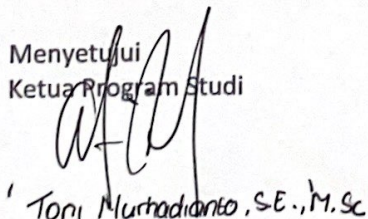 Menyetujui
Ketua Program Studi
Toni Nurhadianto, S.E., M.Sc